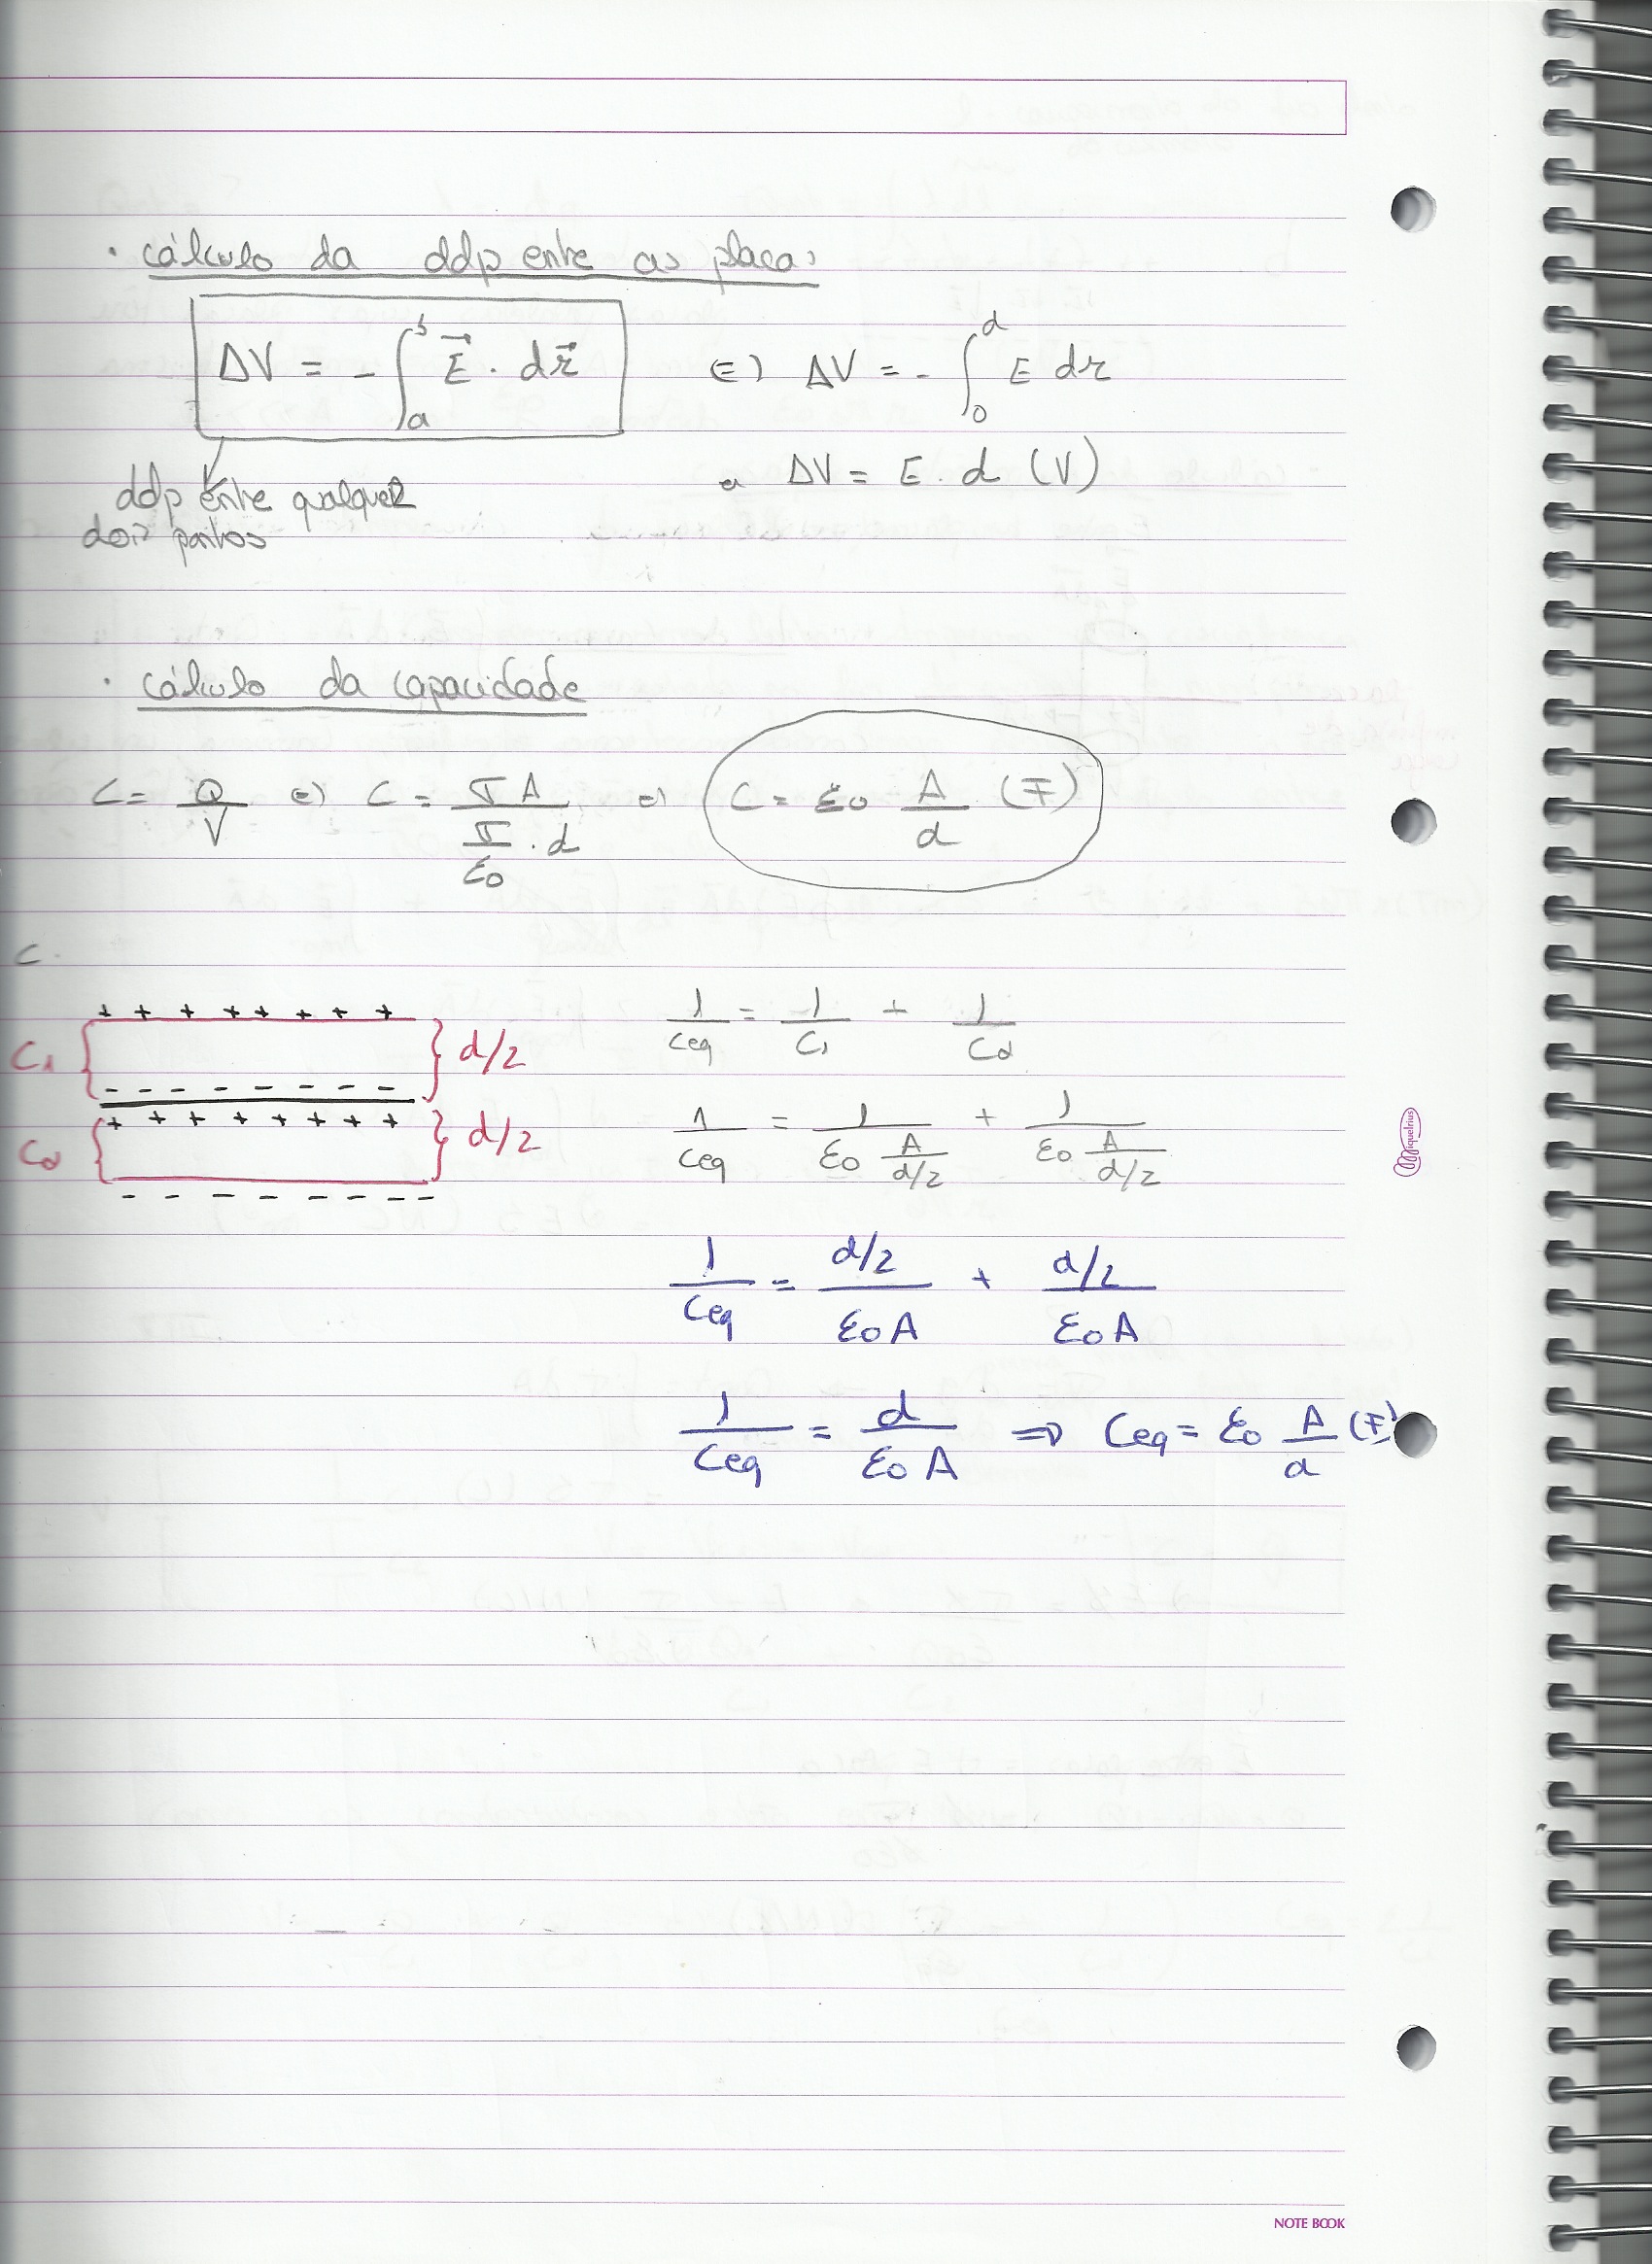 · cálculo da ddp entre as placas
ΔV = - ∫ₐᵇ E⃗ · dr⃗ (=) ΔV = - ∫₀ᵈ E dr
ddp entre qualquer
dois pontos
ΔV = E. d (V)
· cálculo da capacidade
C = Q/V (=) C = σA / (σ/ε₀ · d) (=) C = ε₀ A/d (F)
C.
+ + + + + + + +
C₁ d/2
- - - - - - - -
+ + + + + + + +
C₂ d/2
- - - - - - - -
1/Ceq = 1/C₁ + 1/C₂
1/Ceq = 1/(ε₀ A/(d/2)) + 1/(ε₀ A/(d/2))
1/Ceq = (d/2)/(ε₀A) + (d/2)/(ε₀A)
1/Ceq = d/(ε₀A) => Ceq = ε₀ A/d (F)
Miquelrius
NOTE BOOK